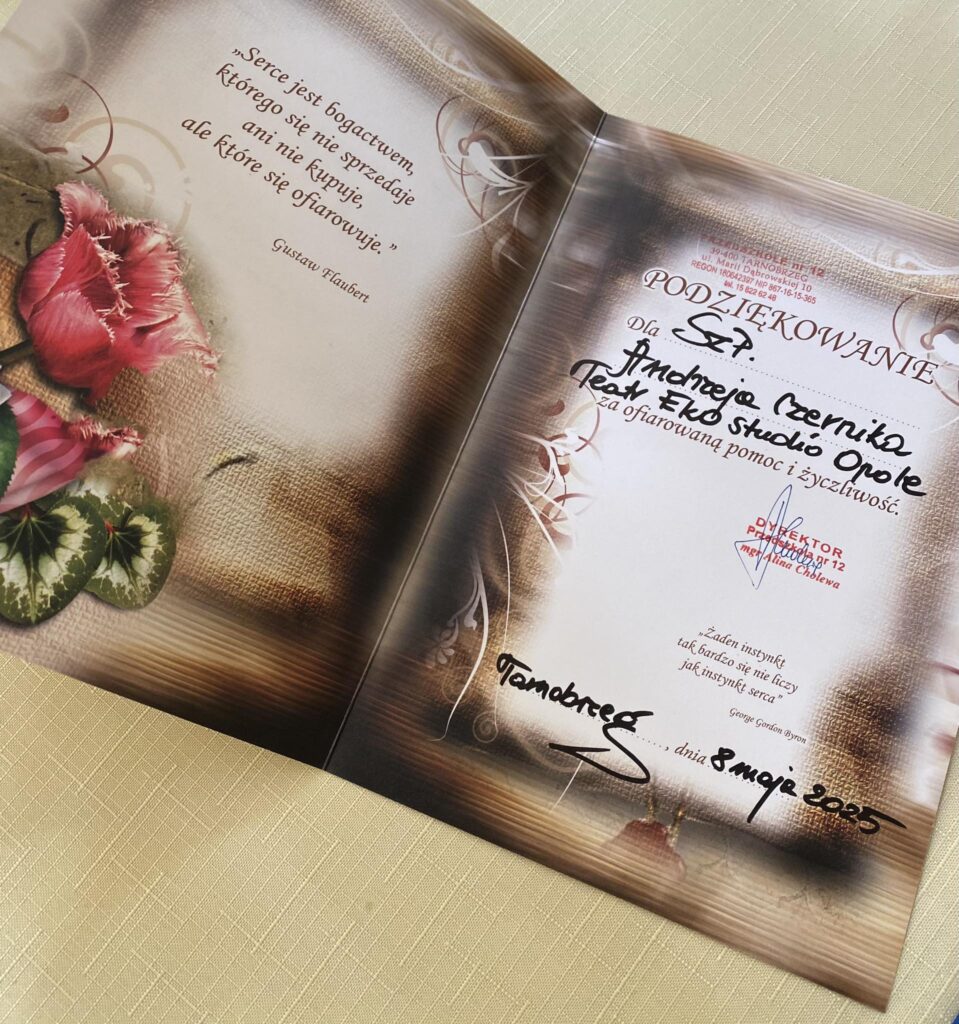 „Serce jest bogactwem,
którego się nie sprzedaje
ani nie kupuje,
ale które się ofiarowuje.”
Gustaw Flaubert
PRZEDSZKOLE nr 12
39-400 TARNOBRZEG
ul. Marii Dąbrowskiej 10
REGON 180642397 NIP 867-16-15-365
tel. 15 822 62 48
PODZIĘKOWANIE
Dla Sz.P.
Andrzeja Czernika
Teatr Eko Studio Opole
za ofiarowaną pomoc i życzliwość.
DYREKTOR
Przedszkola nr 12
mgr Alina Cholewa
„Żaden instynkt
tak bardzo się nie liczy
jak instynkt serca”
George Gordon Byron
Tarnobrzeg, dnia 8 maja 2025